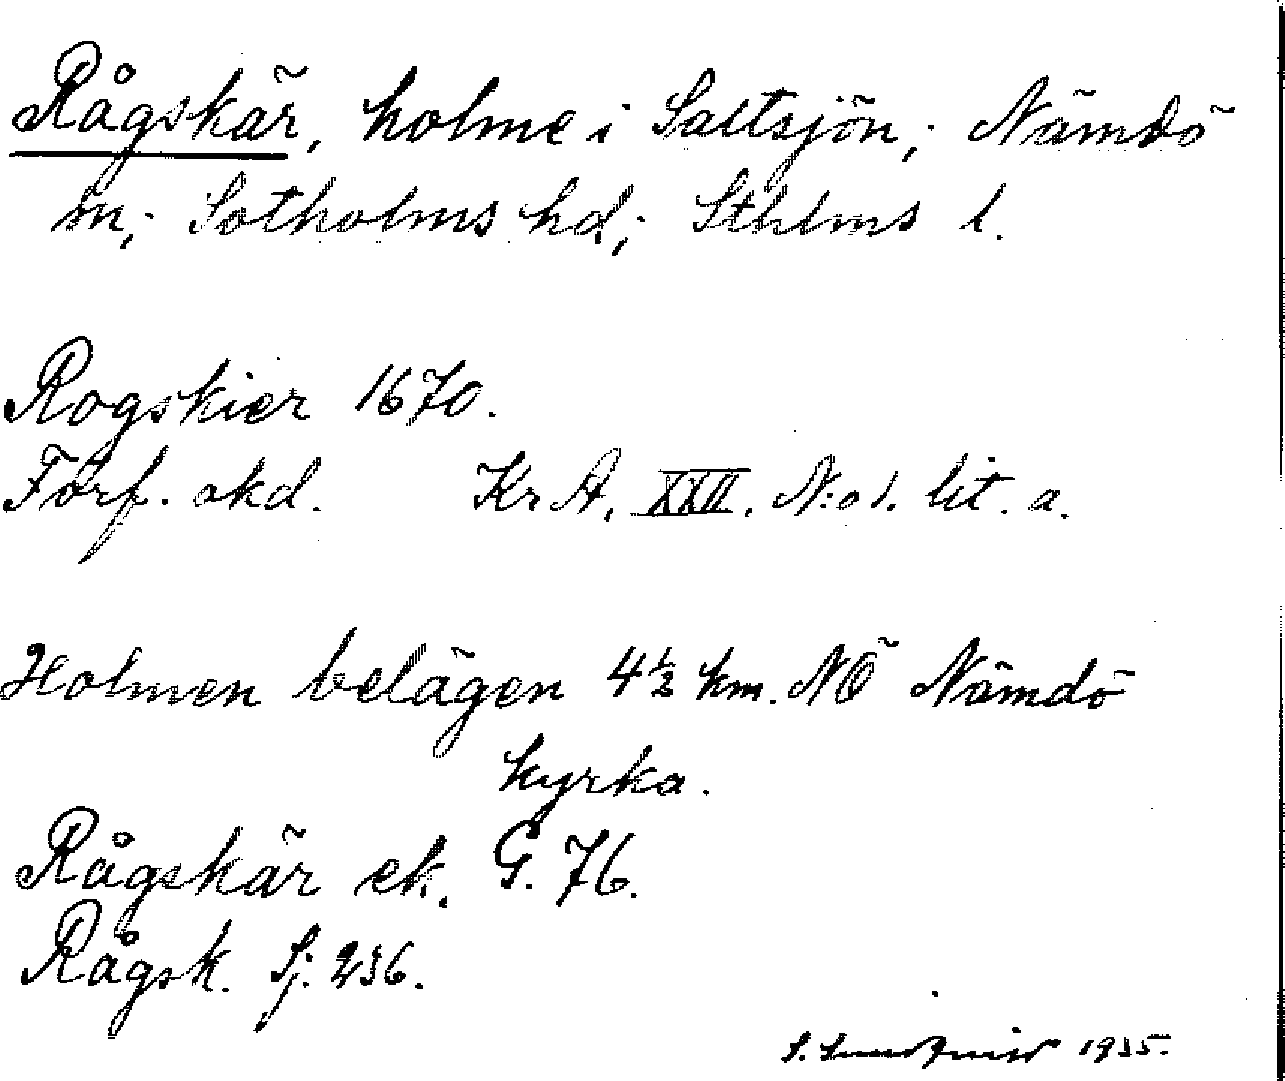 Rågskär, holme i Saltsjön; Nämdö
sn; Sotholms hd; Sthlms l.
Rogskier 1670.
Förf. okd. Kr A. XXII. N:o 1. lit. a.
Holmen belägen 4½ km. NÖ Nämdö
kyrka.
Rågskär ek. G. 76.
Rågsk. Sj. 236.
S. 1935.